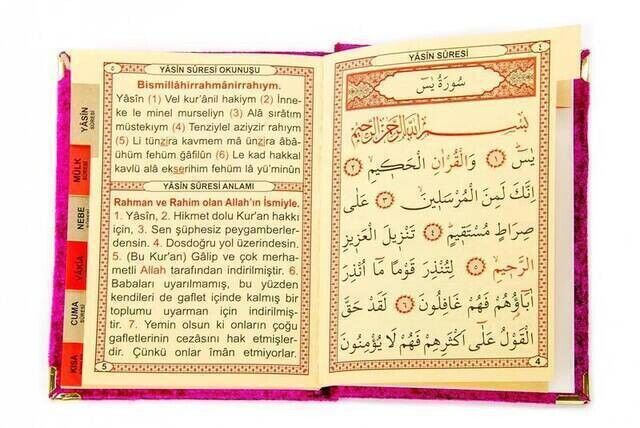 YÂSİN SÛRESİ
٤
سُورَةُ يٰسٓ
بِسْمِ اللّٰهِ الرَّحْمٰنِ الرَّحِيمِ
يٰسٓ ﴿١﴾ وَالْقُرْاٰنِ الْحَك۪يمِ ﴿٢﴾
اِنَّكَ لَمِنَ الْمُرْسَل۪ينَ ﴿٣﴾ عَلٰى
صِرَاطٍ مُسْتَق۪يمٍ ﴿٤﴾ تَنْز۪يلَ الْعَز۪يزِ
الرَّح۪يمِ ﴿٥﴾ لِتُنْذِرَ قَوْمًا مَٓا اُنْذِرَ
اٰبَٓاؤُ۬هُمْ فَهُمْ غَافِلُونَ ﴿٦﴾ لَقَدْ حَقَّ
الْقَوْلُ عَلٰٓى اَكْثَرِهِمْ فَهُمْ لَا يُؤْمِنُونَ
4
٥
YÂSİN SÛRESİ OKUNUŞU
Bismillâhirrahmânirrahıym.
Yâsîn (1) Vel kur'ânil hakiym (2) İnne-
ke le minel murseliyn (3) Alâ sırâtım
müstekıym (4) Tenziylel aziyzir rahıym
(5) Li tünzira kavmem mâ ünzira âbâ-
ühüm fehüm ğâfilûn (6) Le kad hakkal
kavlü alâ ekserihim fehüm lâ yü'minûn
YÂSİN SÛRESİ ANLAMI
Rahman ve Rahim olan Allah'ın İsmiyle.
1. Yâsîn, 2. Hikmet dolu Kur'an hakkı
için, 3. Sen şüphesiz peygamberler-
densin. 4. Dosdoğru yol üzerindesin.
5. (Bu Kur'an) Gâlip ve çok merha-
metli Allah tarafından indirilmiştir. 6.
Babaları uyarılmamış, bu yüzden
kendileri de gaflet içinde kalmış bir
toplumu uyarman için indirilmiş-
tir. 7. Yemin olsun ki onların çoğu
gafletlerinin cezasını hak etmişler-
dir. Çünkü onlar îmân etmiyorlar.
5
YÂSİN
SÛRESİ
MÜLK
SÛRESİ
NEBE
SÛRESİ
VÂKIA
CUMA
SÛRESİ
KISA